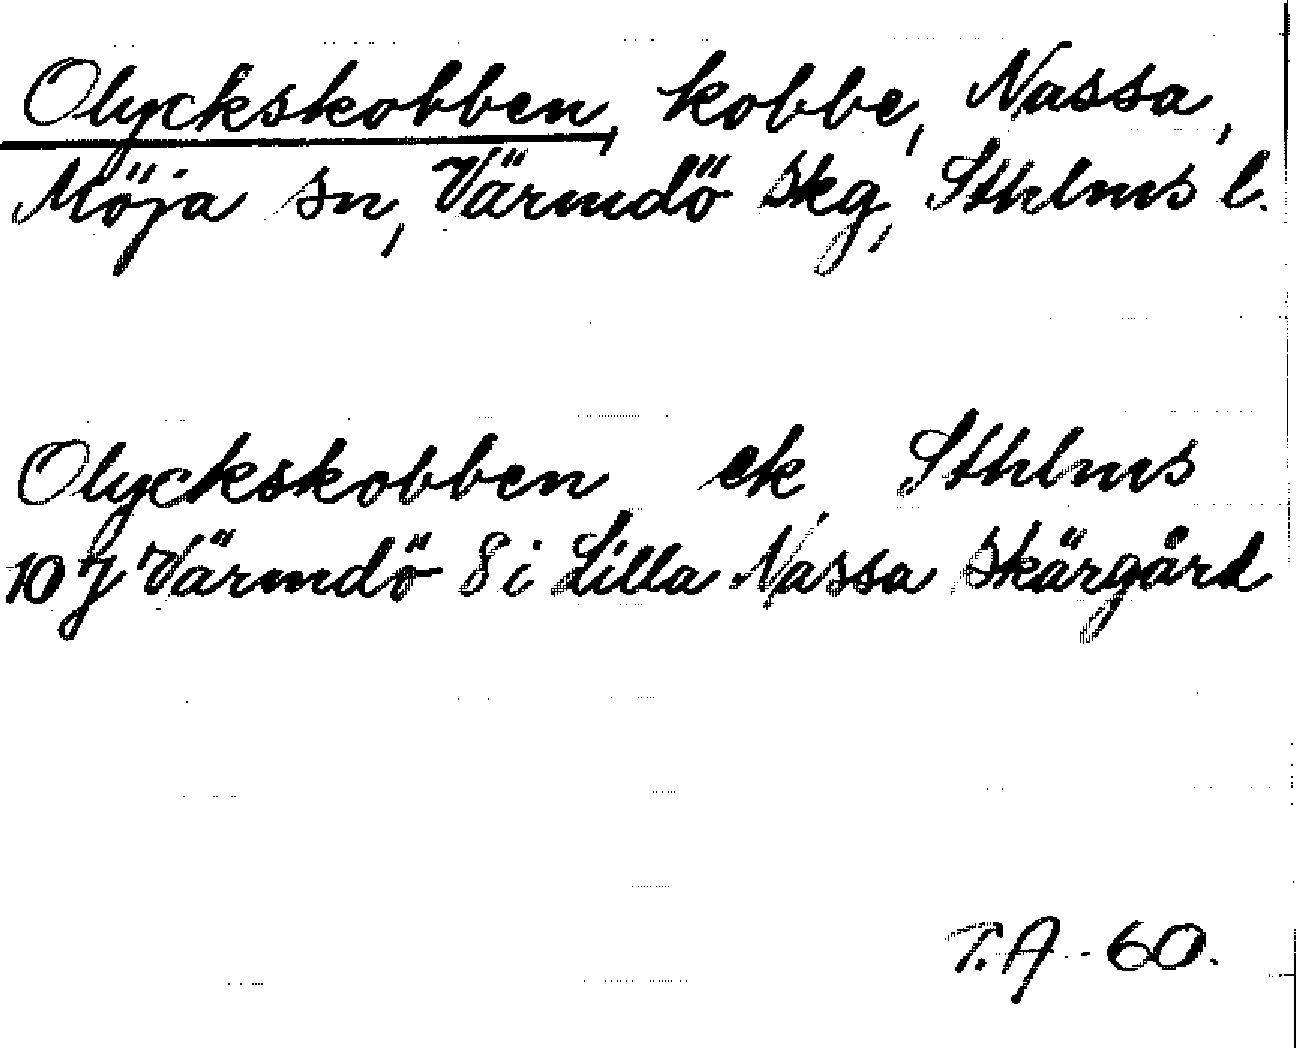 Olyckskobben, kobbe, Nassa,
Möja sn, Värmdö skg, Sthlms l.
Olyckskobben ek Sthlms
10 J Värmdö 8 i Lilla Nassa skärgård
T.A -60.